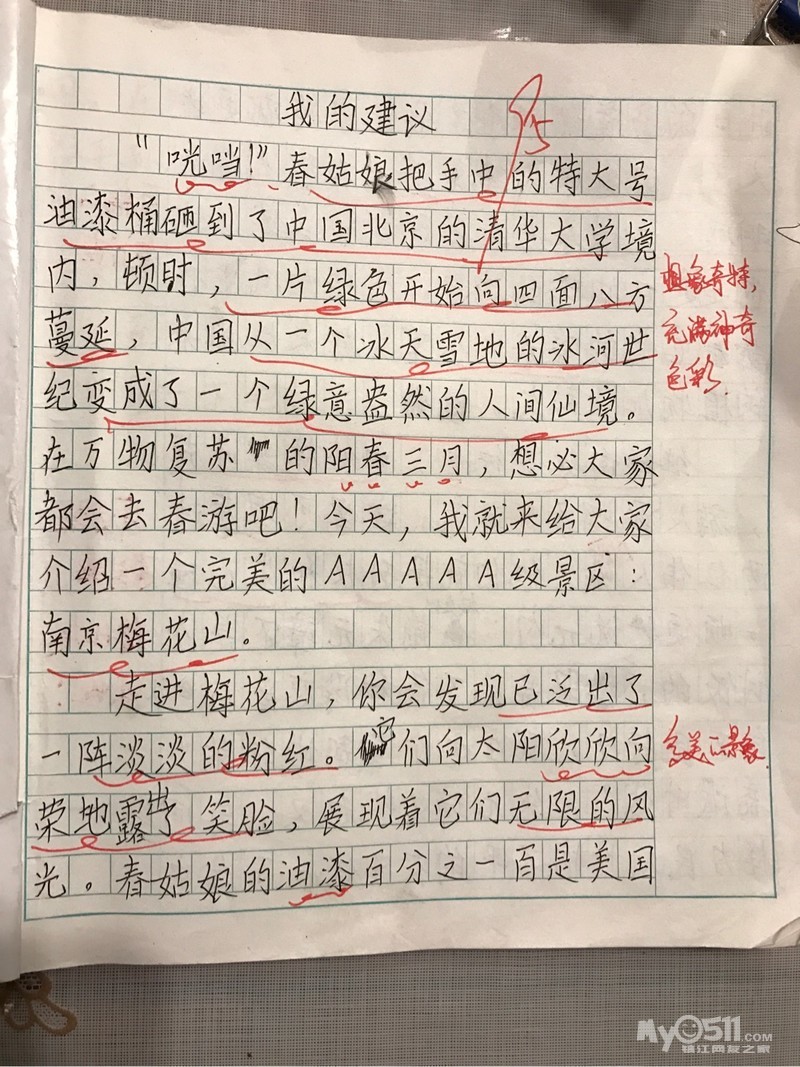 我的建议
95
“咣当!”春姑娘把手中的特大号
油漆桶砸到了中国北京的清华大学境
内，顿时，一片绿色开始向四面八方
蔓延，中国从一个冰天雪地的冰河世
纪变成了一个绿意盎然的人间仙境。
在万物复苏的阳春三月，想必大家
都会去春游吧！今天，我就来给大家
介绍一个完美的AAAAA级景区：
南京梅花山。
走进梅花山，你会发现已泛出了
一阵淡淡的粉红。它们向太阳欣欣向
荣地露出了笑脸，展现着它们无限的风
光。春姑娘的油漆百分之一百是美国
想象奇特，
充满神奇
色彩
美
景象
MY0511.COM
镇江网友之家